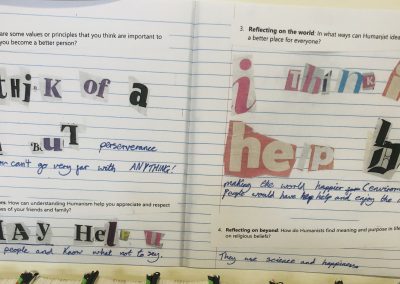 are some values or principles that you think are important to
you become a better person?
think of a
But perserverance
can't go very far with ANYTHING!
How can understanding Humanism help you appreciate and respect
of your friends and family?
MAY HeLp u
people and know what not to say.
3. Reflecting on the world: In what ways can Humanist
a better place for everyone?
i think
help
making the world happier
People would have help and enjoy the
4. Reflecting on beyond: How do Humanists find meaning and purpose in life
on religious beliefs?
They use science and happiness